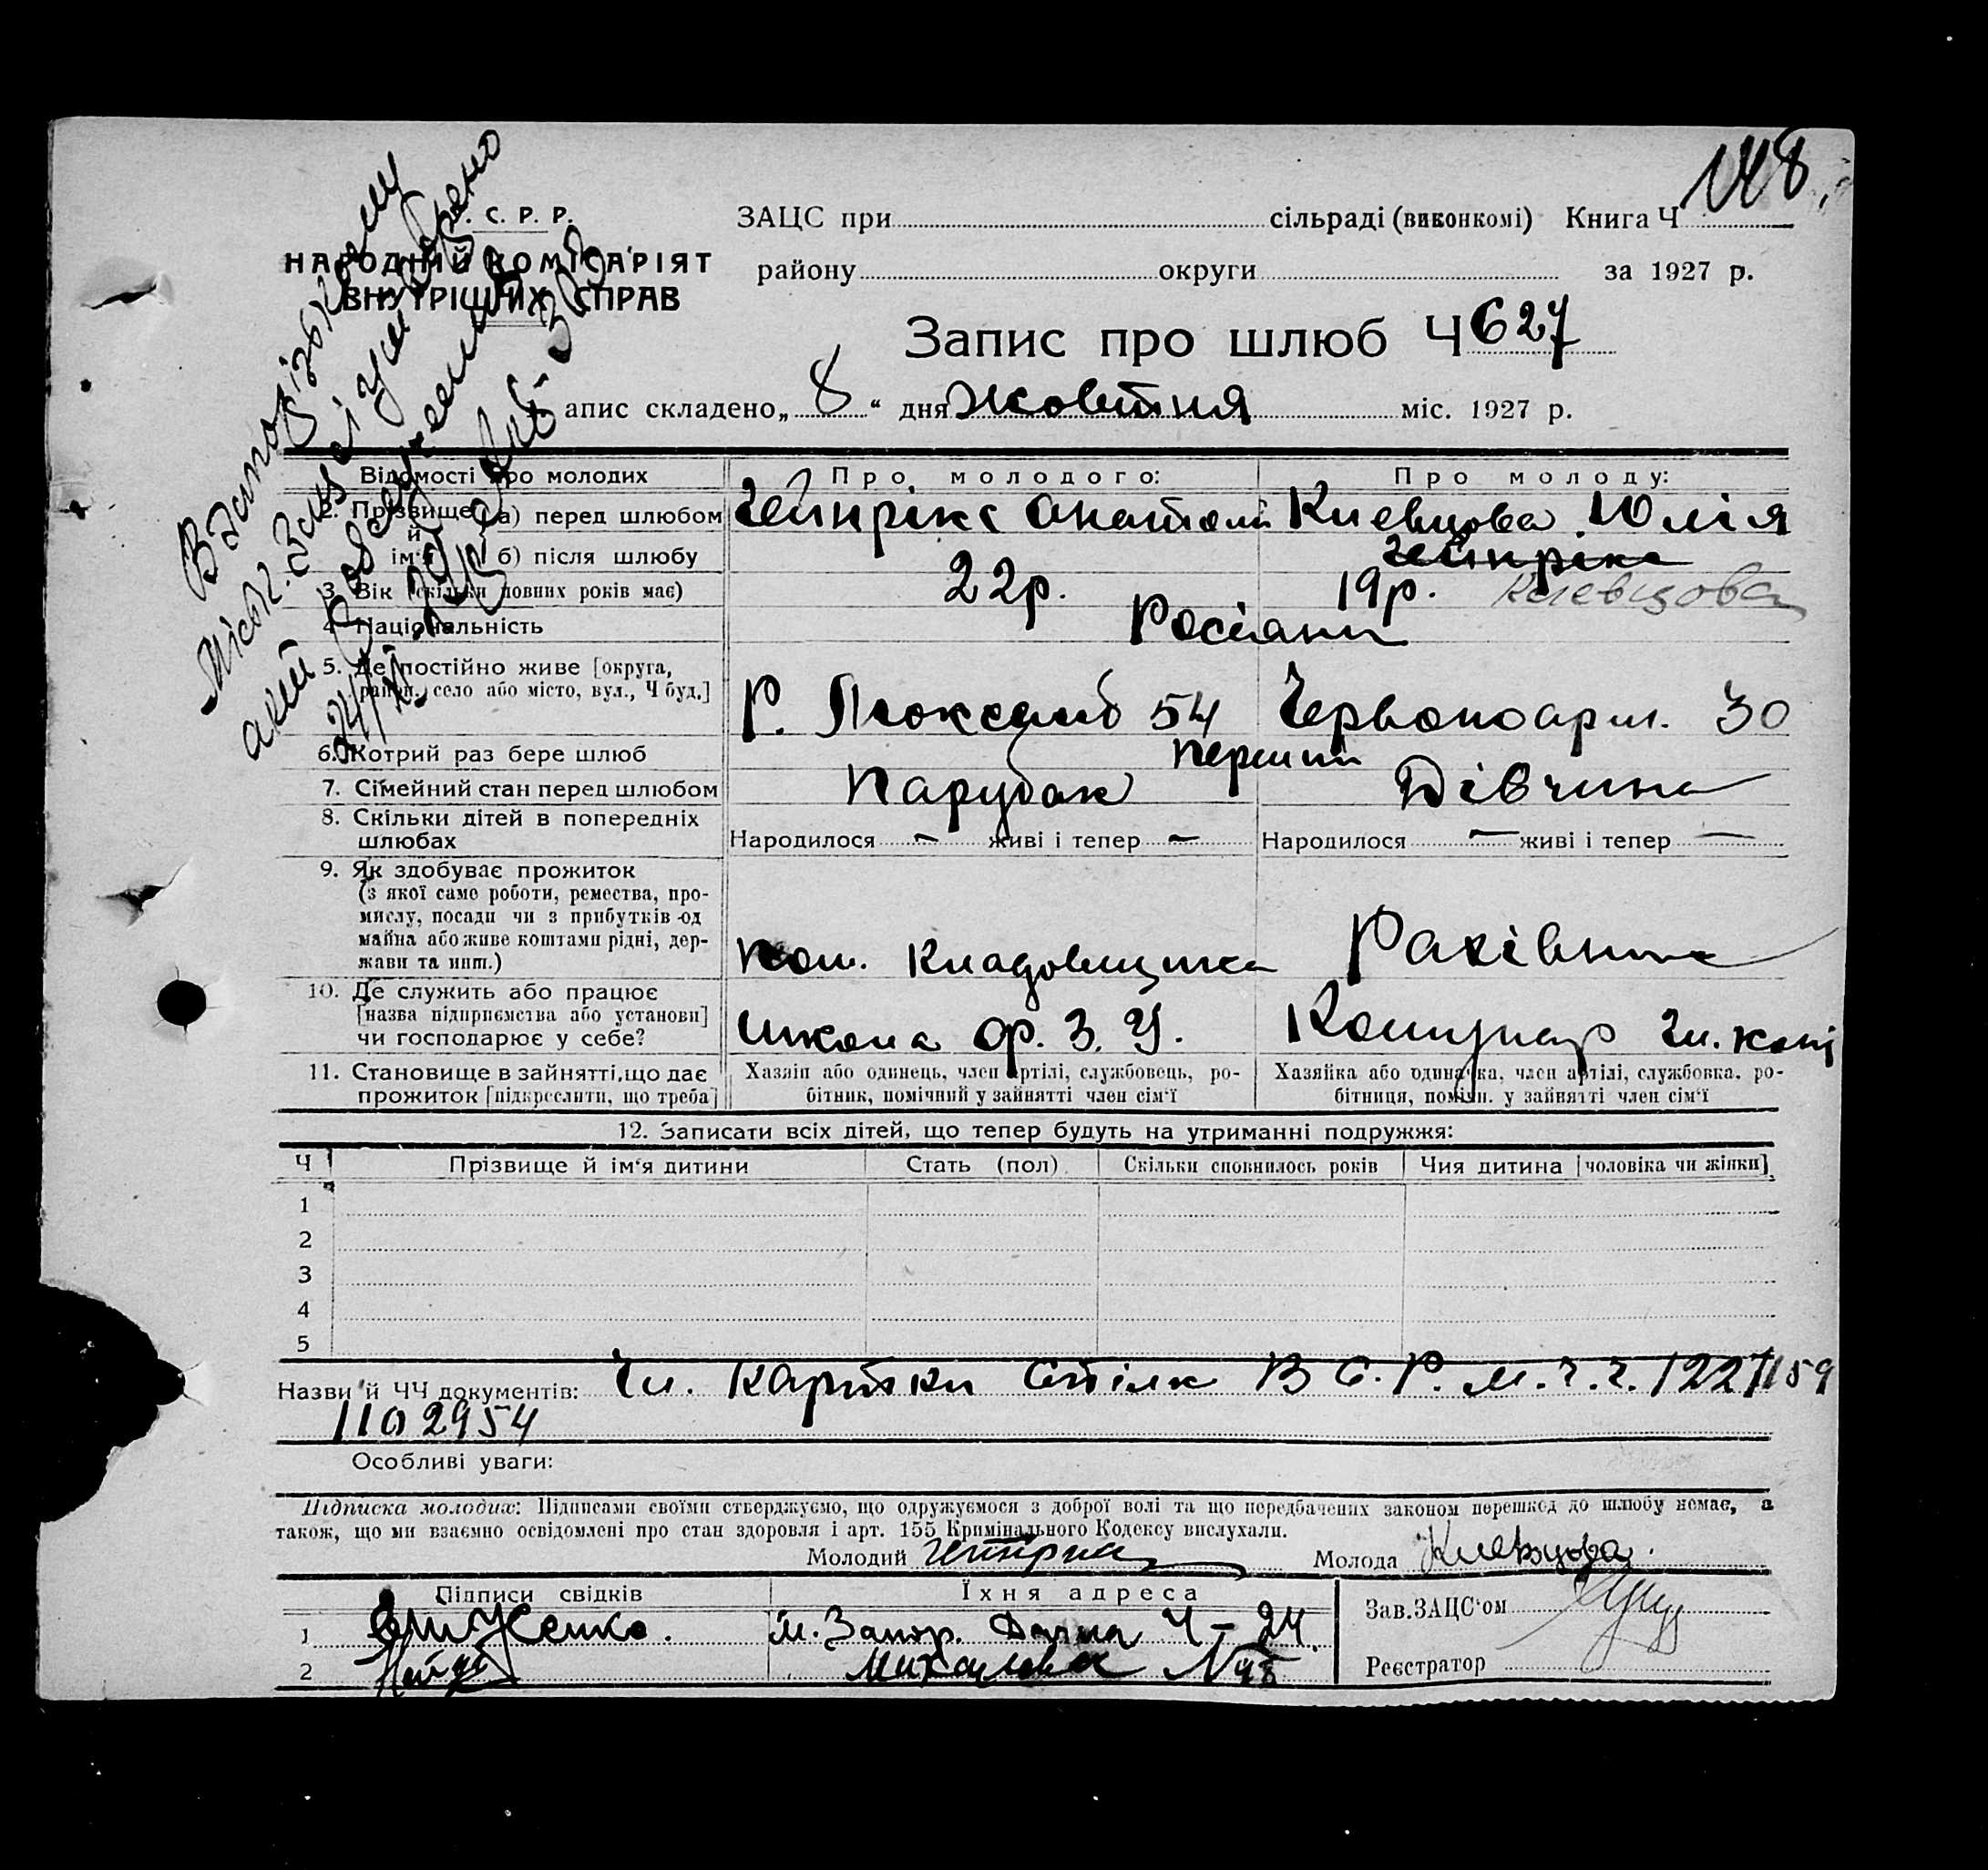 148
С. Р. Р.
НАРОДНІЙ КОМІСАРІЯТ
ВНУТРІШНІХ СПРАВ
ЗАЦС при сільраді (виконкомі) Книга Ч
району округи за 1927 р.
Запис про шлюб Ч 627
апис складено „ 8 “ дня Жовтня міс. 1927 р.
Відомості про молодих
Про молодого:
Про молоду:
2. Прізвище й ім'я
а) перед шлюбом
Гейнрікс Анатолій
Киевцова Юлія
б) після шлюбу
Гейнрікс
3. Вік (скільки повних років має)
22р.
19р. Киевцова
4. Національність
Росіяни
5. Де постійно живе [округа,
район, село або місто, вул., Ч буд.]
Р. Люксемб 54
Червоноарм. 30
6. Котрий раз бере шлюб
перший
7. Сімейний стан перед шлюбом
Парубок
Дівчина
8. Скільки дітей в попередніх
шлюбах
Народилося — живі і тепер —
Народилося — живі і тепер —
9. Як здобуває прожиток
(з якої саме роботи, ремества, про-
мислу, посади чи з прибутків од
майна або живе коштами рідні, дер-
жави та инш.)
Пом. Кладовщика
Рахівниця
10. Де служить або працює
[назва підприємства або установи]
чи господарює у себе?
Школа Ф. З. У.
Комунар
11. Становище в зайнятті, що дає
прожиток [підкреслити, що треба]
Хазяїн або одинець, член артілі, службовець, ро-
бітник, помічний у зайнятті член сім'ї
Хазяйка або одиначка, член артілі, службовка, ро-
бітниця, помічн. у зайнятті член сім'ї
12. Записати всіх дітей, що тепер будуть на утриманні подружжя:
Ч Прізвище й ім'я дитини Стать (пол) Скільки сповнилось років Чия дитина [чоловіка чи жінки]
1
2
3
4
5
Назви й ЧЧ документів: Чл. Картки Спілк В С. Р. М. ч.ч. 1227159
1102954
Особливі уваги:
Підписка молодих: Підписами своїми стверджуємо, що одружуємося з доброї волі та що передбачених законом перешкод до шлюбу немає, а
також, що ми взаємно освідомлені про стан здоров'я і арт. 155 Кримінального Кодексу вислухали.
Молодий Гейнрікс
Молода Киевцова
Підписи свідків
Їхня адреса
Зав. ЗАЦС'ом
1 м. Запор. Дачна Ч - 24.
2 Михайловка
Реєстратор